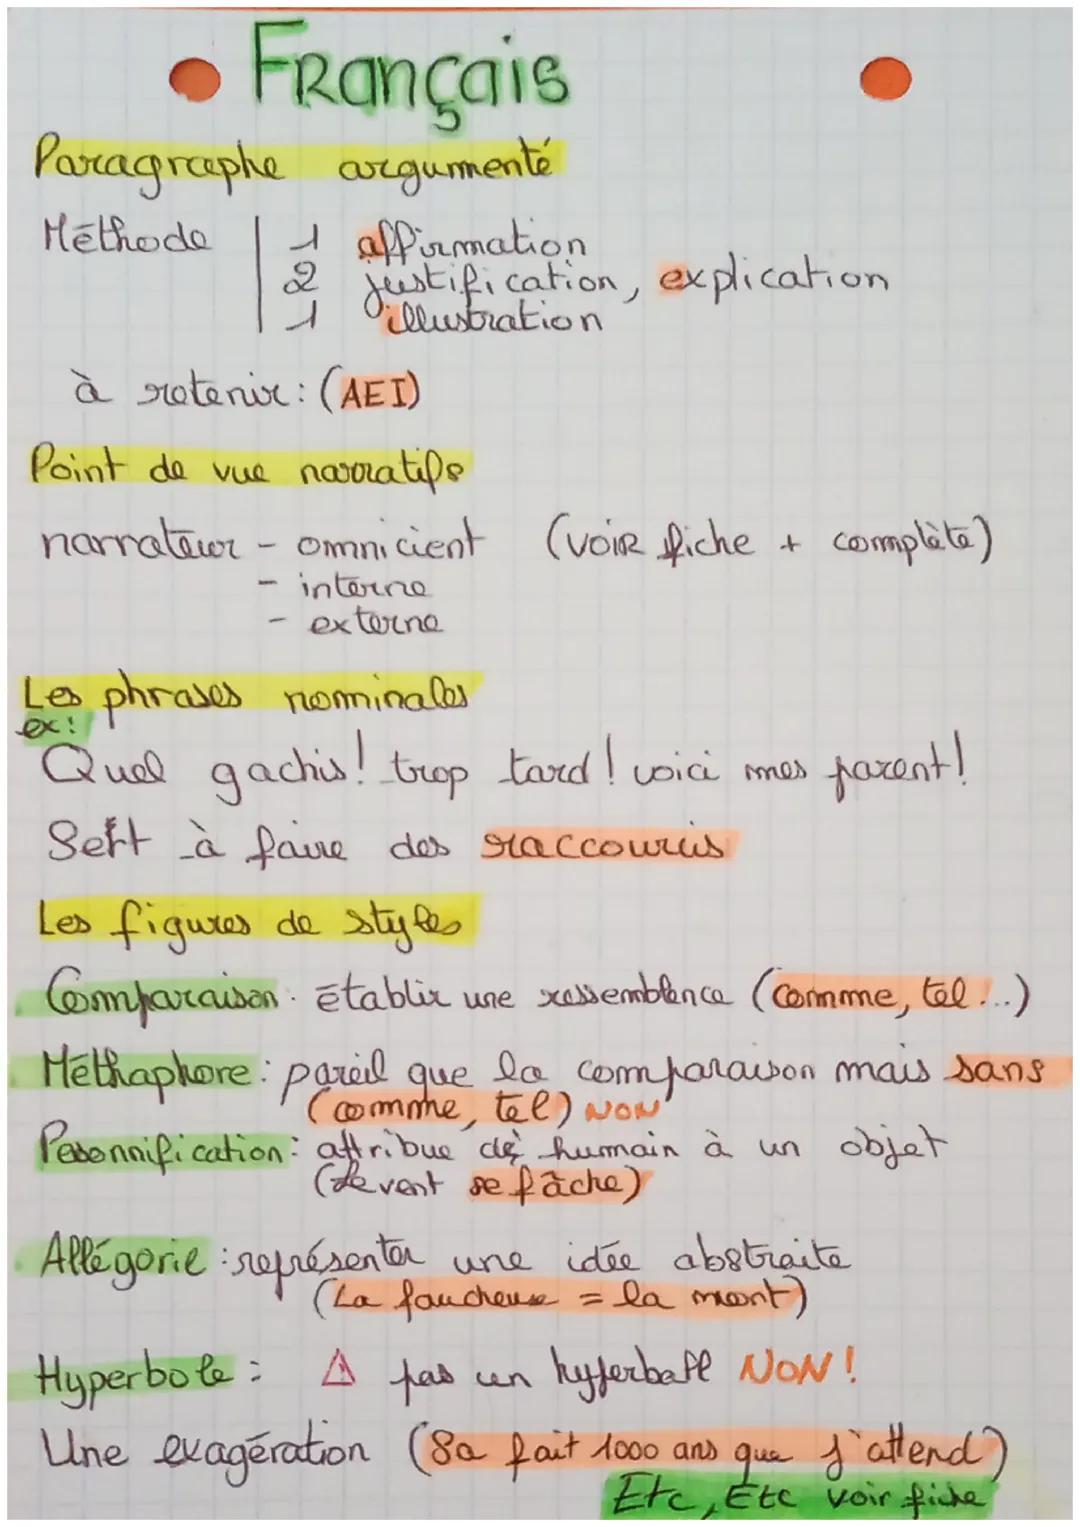 Français
Paragraphe argumenté
Méthode 1 affirmation
2 justification, explication
1 illustration
à retenir : (AEI)
Point de vue narratifs
narrateur - omnicient (voir fiche + complète)
- interne
- externe
Les phrases nominales
ex:
Quel gachis! trop tard! voici mes parent!
Sert à faire des raccourcis
Les figures de styles
Comparaison : établir une ressemblance (comme, tel...)
Méthaphore : pareil que la comparaison mais sans
(comme, tel) NON
Pesonnification : attribue de humain à un objet
(le vent se fâche)
Allégorie : représenter une idée abstraite
(La faucheuse = la mort)
Hyperbole : ⚠ pas un hyperball NON!
Une exagération (Sa fait 1000 ans que j'attend)
Etc, Etc voir fiche